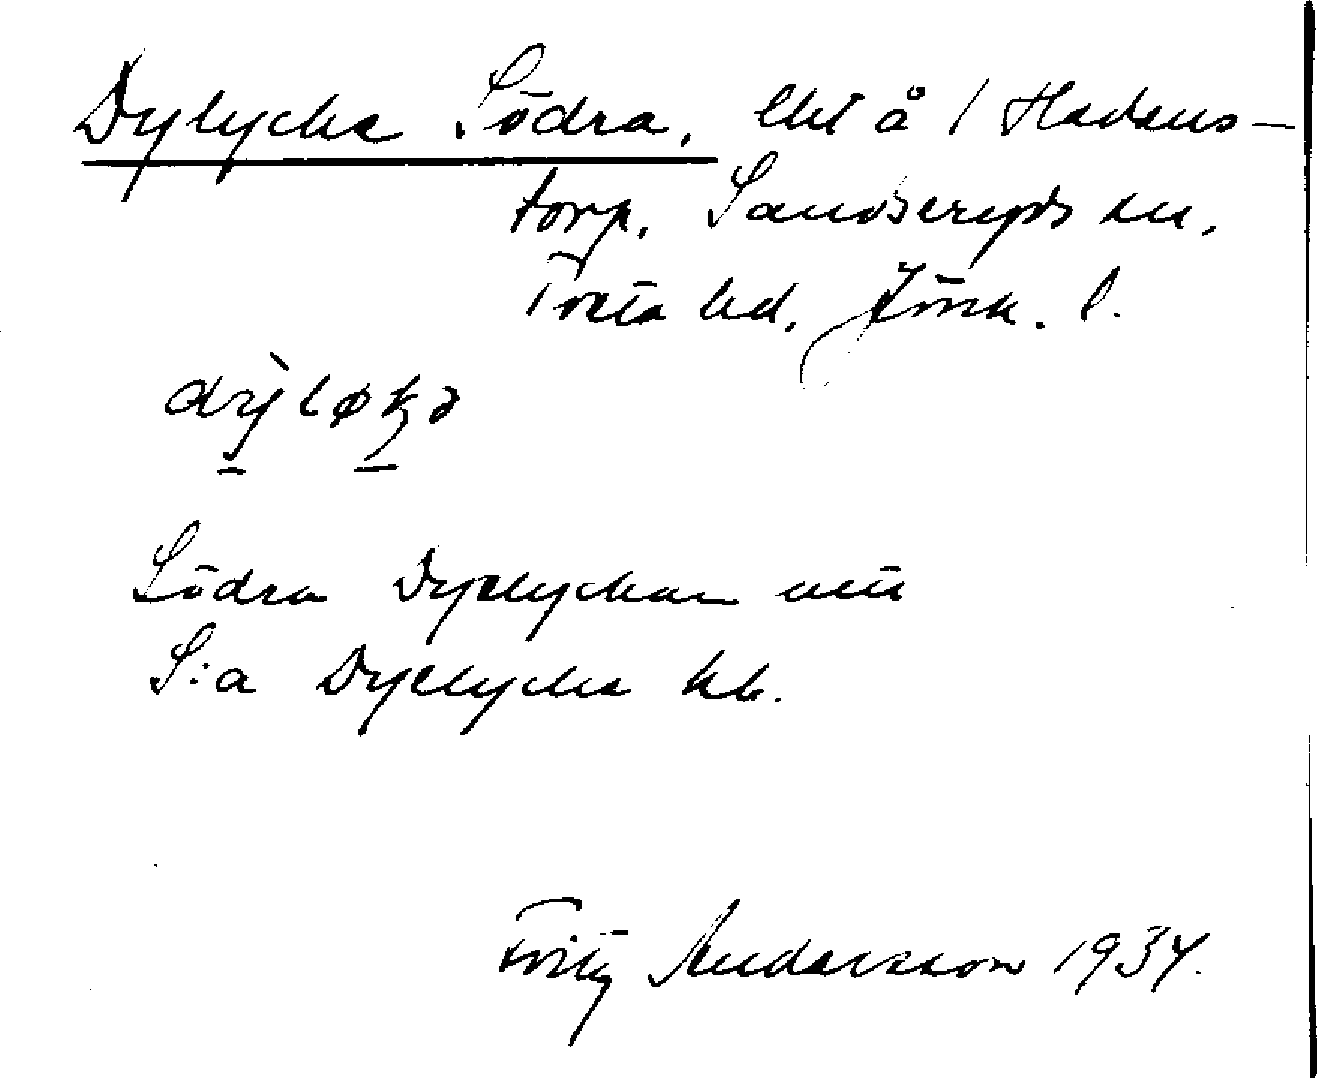 Dylycke Södra, lht å 1 Hedens-
torp, Sandseryds sn,
Tveta hd, Jönk. l.
dỳløkə
Södra Dyelyckan
S:a Dyelycke kb.
Fritz Andersson 1934.